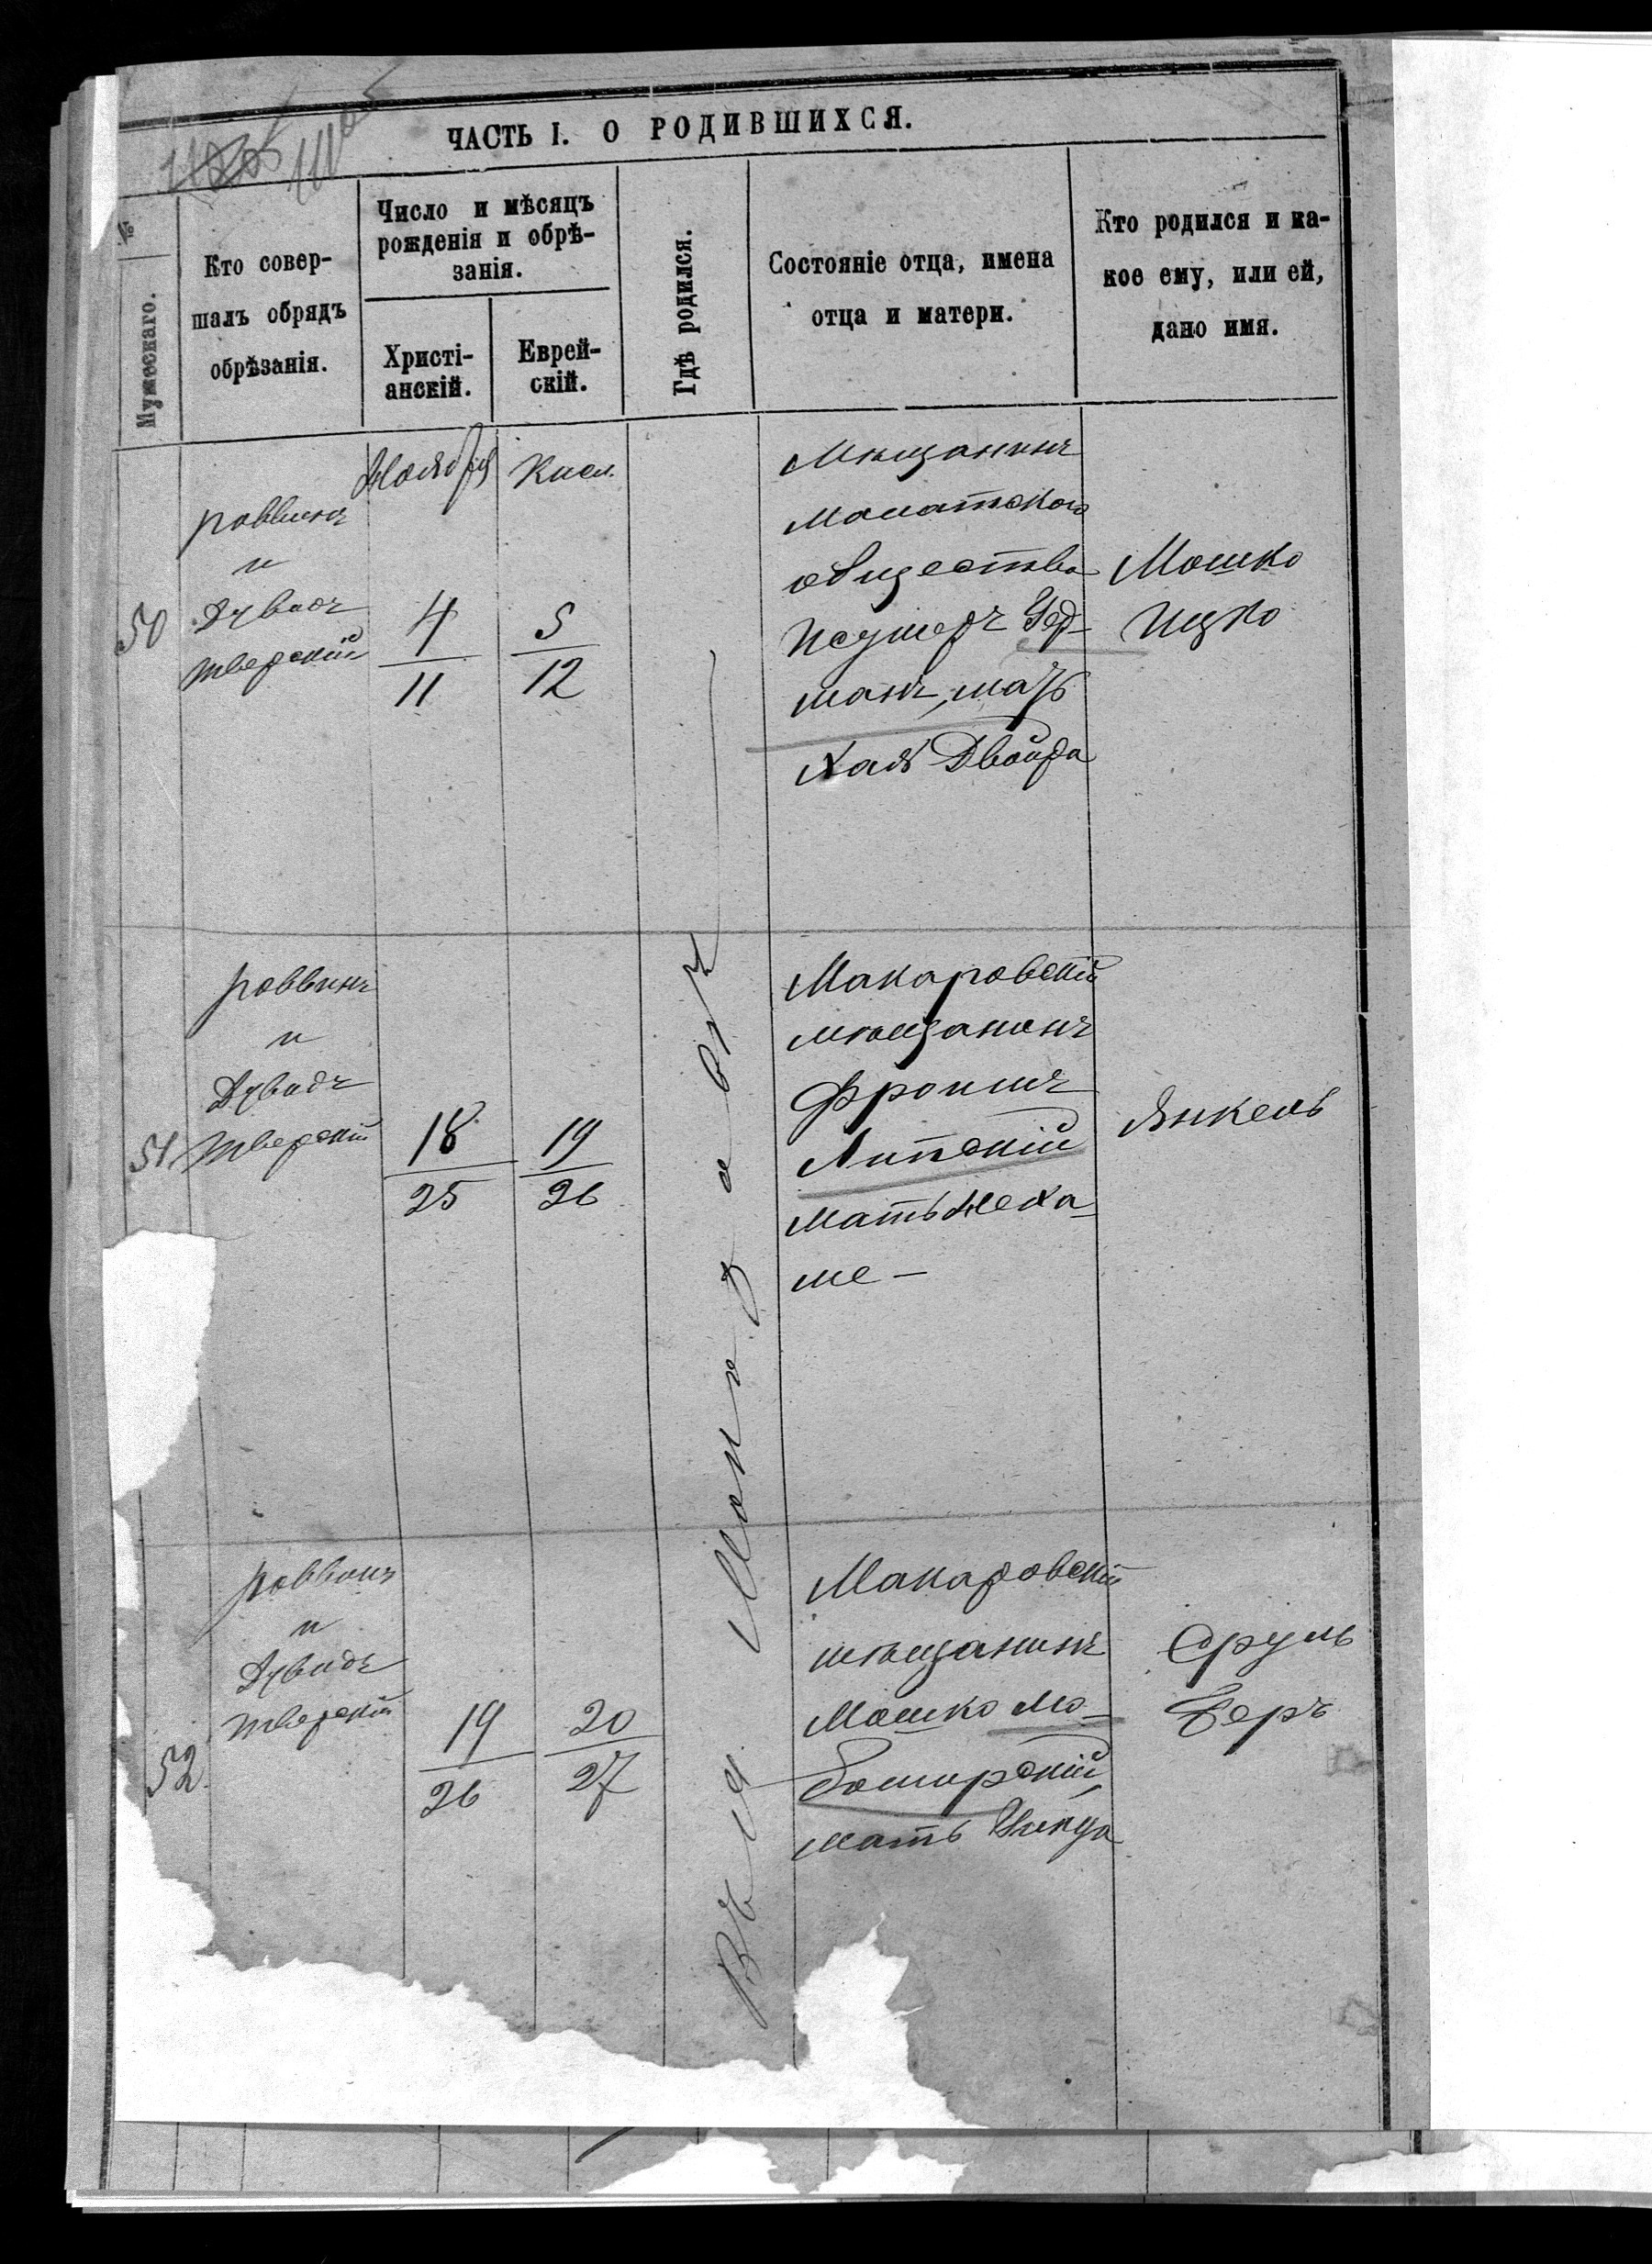 ЧАСТЬ I. О РОДИВШИХСЯ.
№
Мужескаго.
Кто совер-
шалъ обрядъ
обрѣзанія.
Число и мѣсяцъ
рожденія и обрѣ-
занія.
Христі-
анскій.
Еврей-
скій.
Гдѣ родился.
Состояніе отца, имена
отца и матери.
Кто родился и ка-
кое ему, или ей,
дано имя.
Ноября
Кисл.
50
роввинъ
и
Дувидъ
Тверскій
4
11
5
12
Мѣщанинъ
общества
Герд-
манъ, мать
Хая Двойра
Мошко
Ицко
51
роввинъ
и
Дувидъ
Тверскій
18
25
19
26
Макаровскій
мѣщанинъ
Фроимъ
Липскій
мать Неха-
ме -
Янкель
52
роввинъ
и
Дувидъ
Тверскій
19
26
20
27
Макаровскій
мѣщанинъ
Мошко Мо-
мать
Сруль
Беръ
Въ м. Макаровѣ